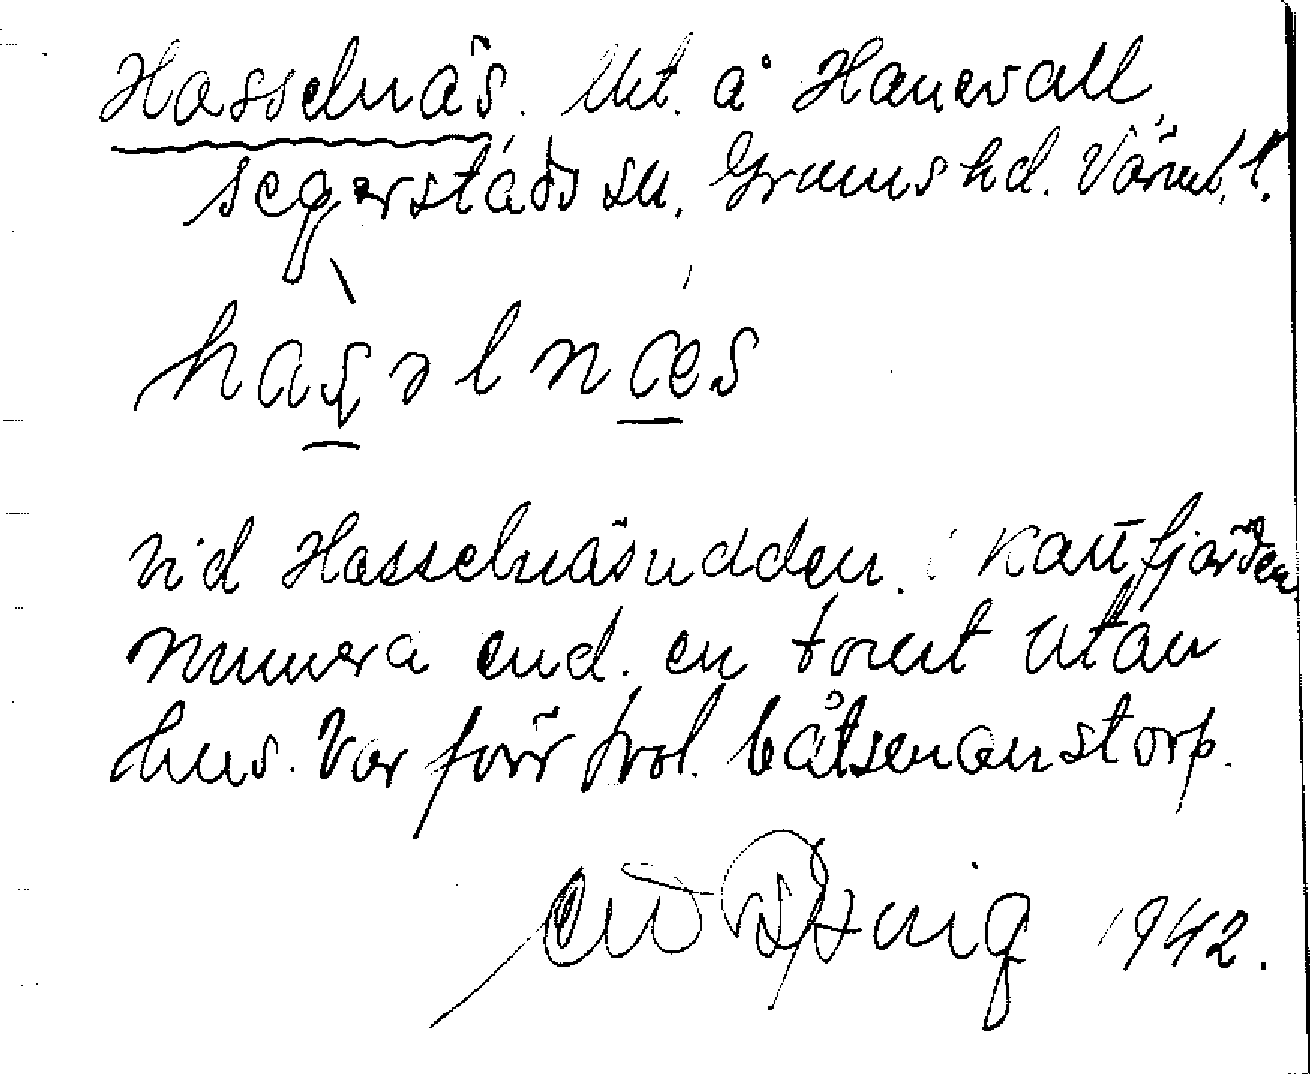 Hasselnäs. Utt. å Hanevall
Segerstads sn. Grums hd. Värml. l.
hasəlnæs
vid Hasselnäsudden. i Kattfjorden
numera end. en tomt utan
hus. Var förr trol. båtsmanstorp.
1942.